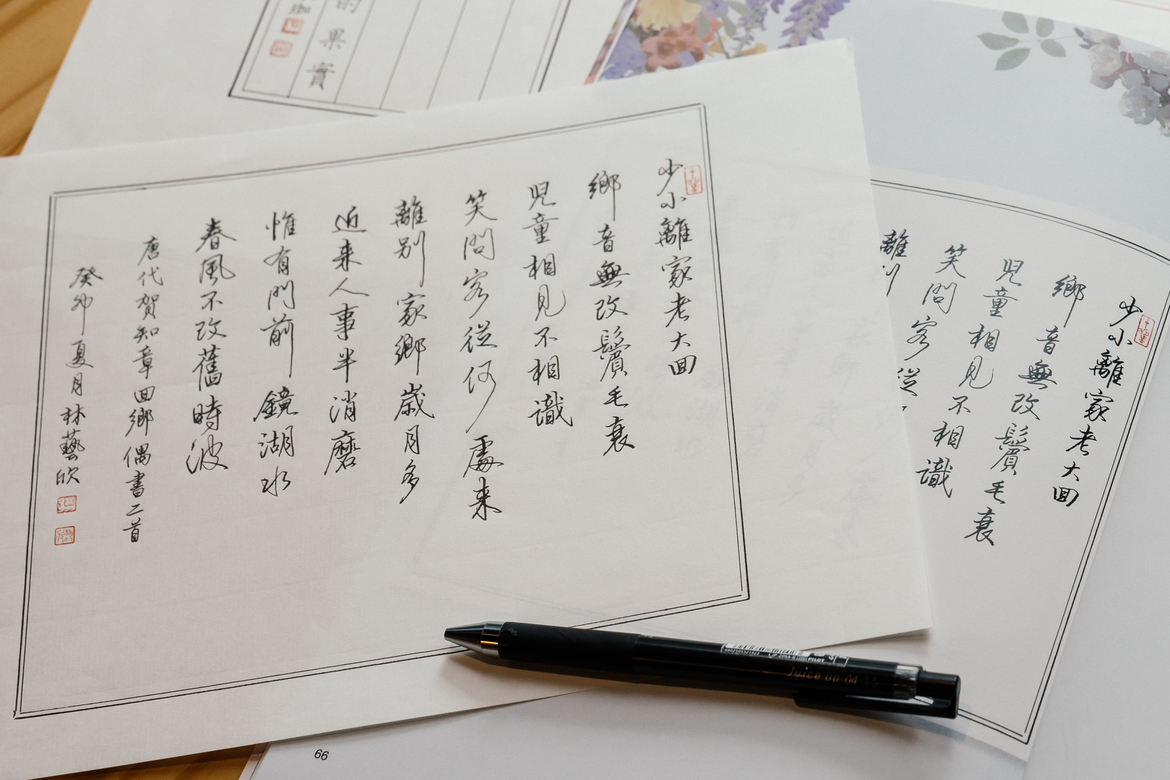 少小離家老大回
鄉音無改鬢毛衰
兒童相見不相識
笑問客從何處来
離別家鄉歲月多
近来人事半消磨
惟有門前鏡湖水
春風不改舊時波
唐代賀知章回鄉偶書二首
癸卯夏月林藝欣
少小離家老大回
鄉音無改鬢毛衰
兒童相見不相識
笑問客從
離別
的果實
Juice up 04
PILOT
66